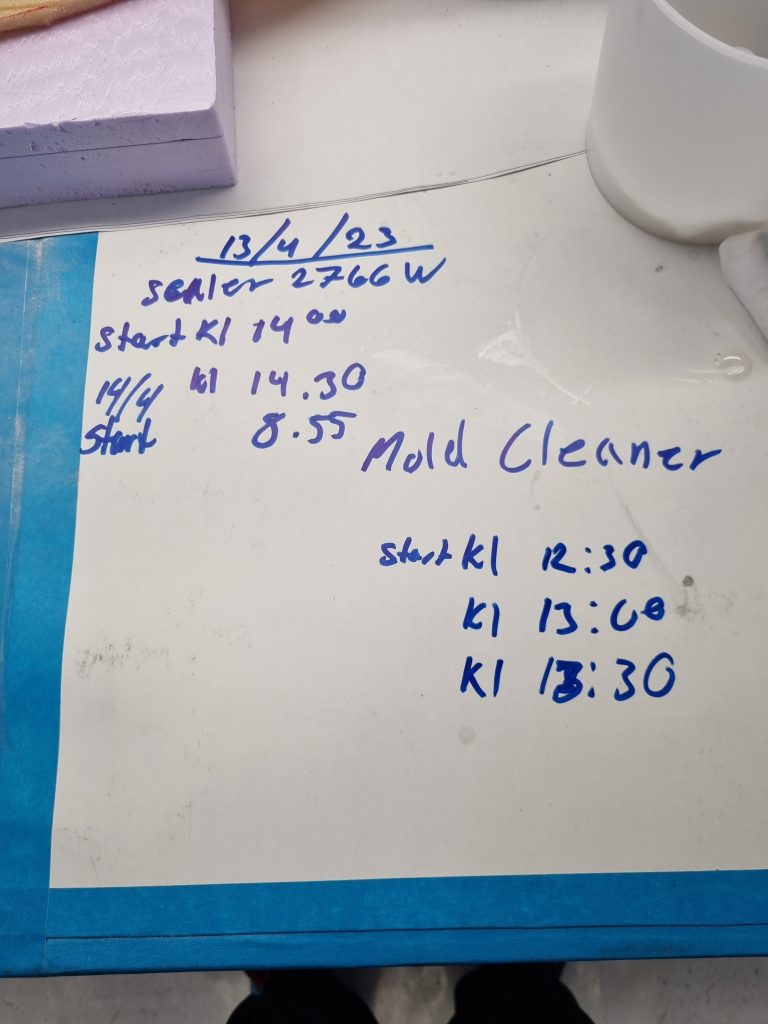 13/4/23
sealer 2766W
start kl 14⁰⁰
14/4 kl 14.30
start 8.55
Mold Cleaner
start kl 12:30
kl 13:00
kl 13:30